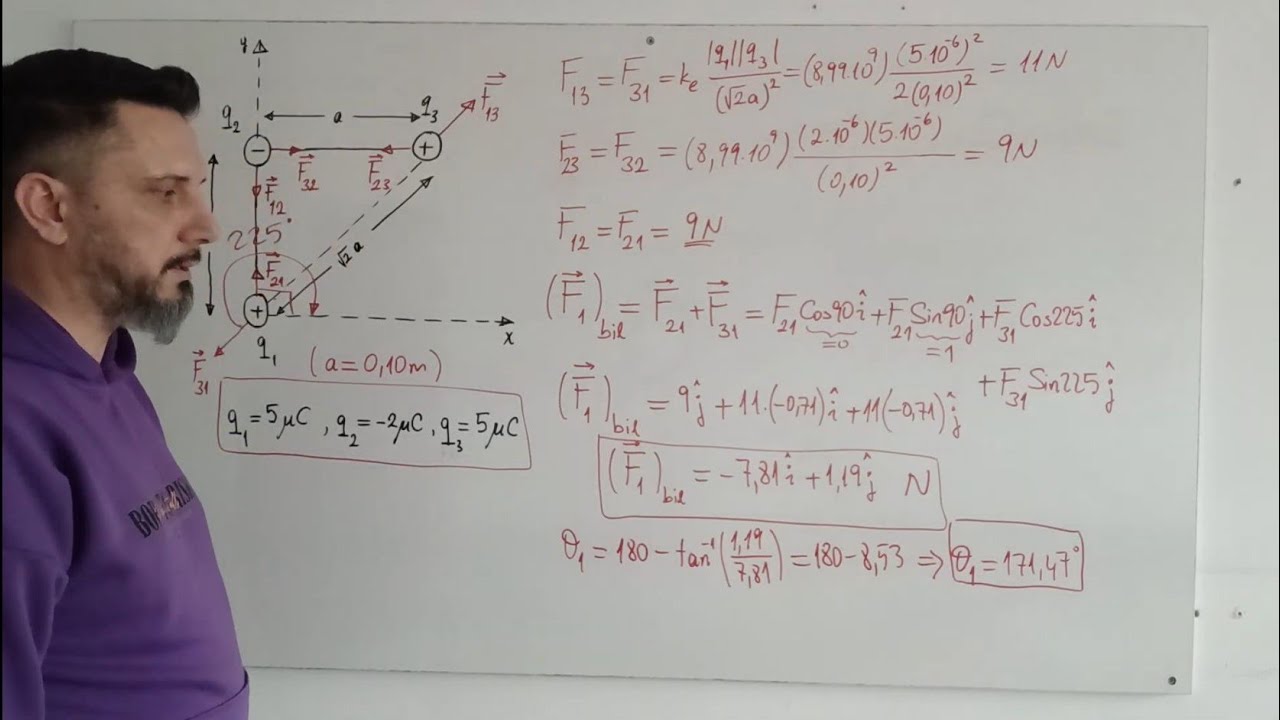 y
q₂
a
q₃
F⃗₁₃
−
F⃗₃₂
F⃗₂₃
+
F⃗₁₂
225°
√2a
F⃗₂₁
+
x
q₁
F⃗₃₁
(a=0,10m)
q₁=5μC , q₂=-2μC , q₃=5μC
F₁₃ = F₃₁ = kₑ |q₁||q₃| / (√2a)² = (8,99.10⁹) (5.10⁻⁶)² / 2(0,10)² = 11N
F₂₃ = F₃₂ = (8,99.10⁹) (2.10⁻⁶)(5.10⁻⁶) / (0,10)² = 9N
F₁₂ = F₂₁ = 9N
(F⃗₁)bil = F⃗₂₁ + F⃗₃₁ = F₂₁Cos90î + F₂₁Sin90ĵ + F₃₁Cos225î
=0 =1
+ F₃₁Sin225ĵ
(F⃗₁)bil = 9ĵ + 11.(-0,71)î + 11(-0,71)ĵ
(F⃗₁)bil = -7,81î + 1,19ĵ N
θ₁ = 180 - tan⁻¹(1,19/7,81) = 180 - 8,53 ⇒ θ₁ = 171,47°